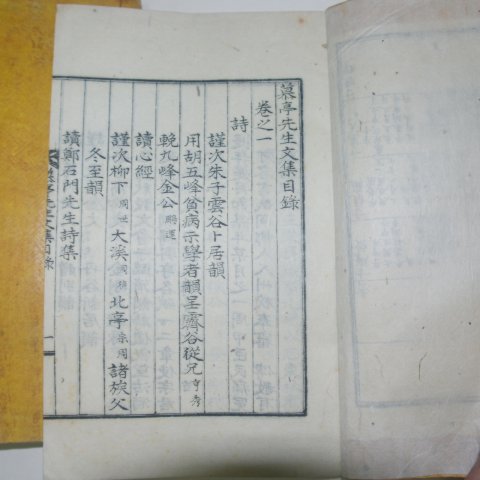 慕亭先生文集目錄
卷之一
詩
謹次朱子雲谷卜居韻
用胡五峰貧病示學者韻呈霽谷從兄亨秀
輓九峰金公
讀心經
謹次柳下大溪北亭諸旋父
冬至韻
讀鄭石門先生詩集
亭先生文集目錄
一